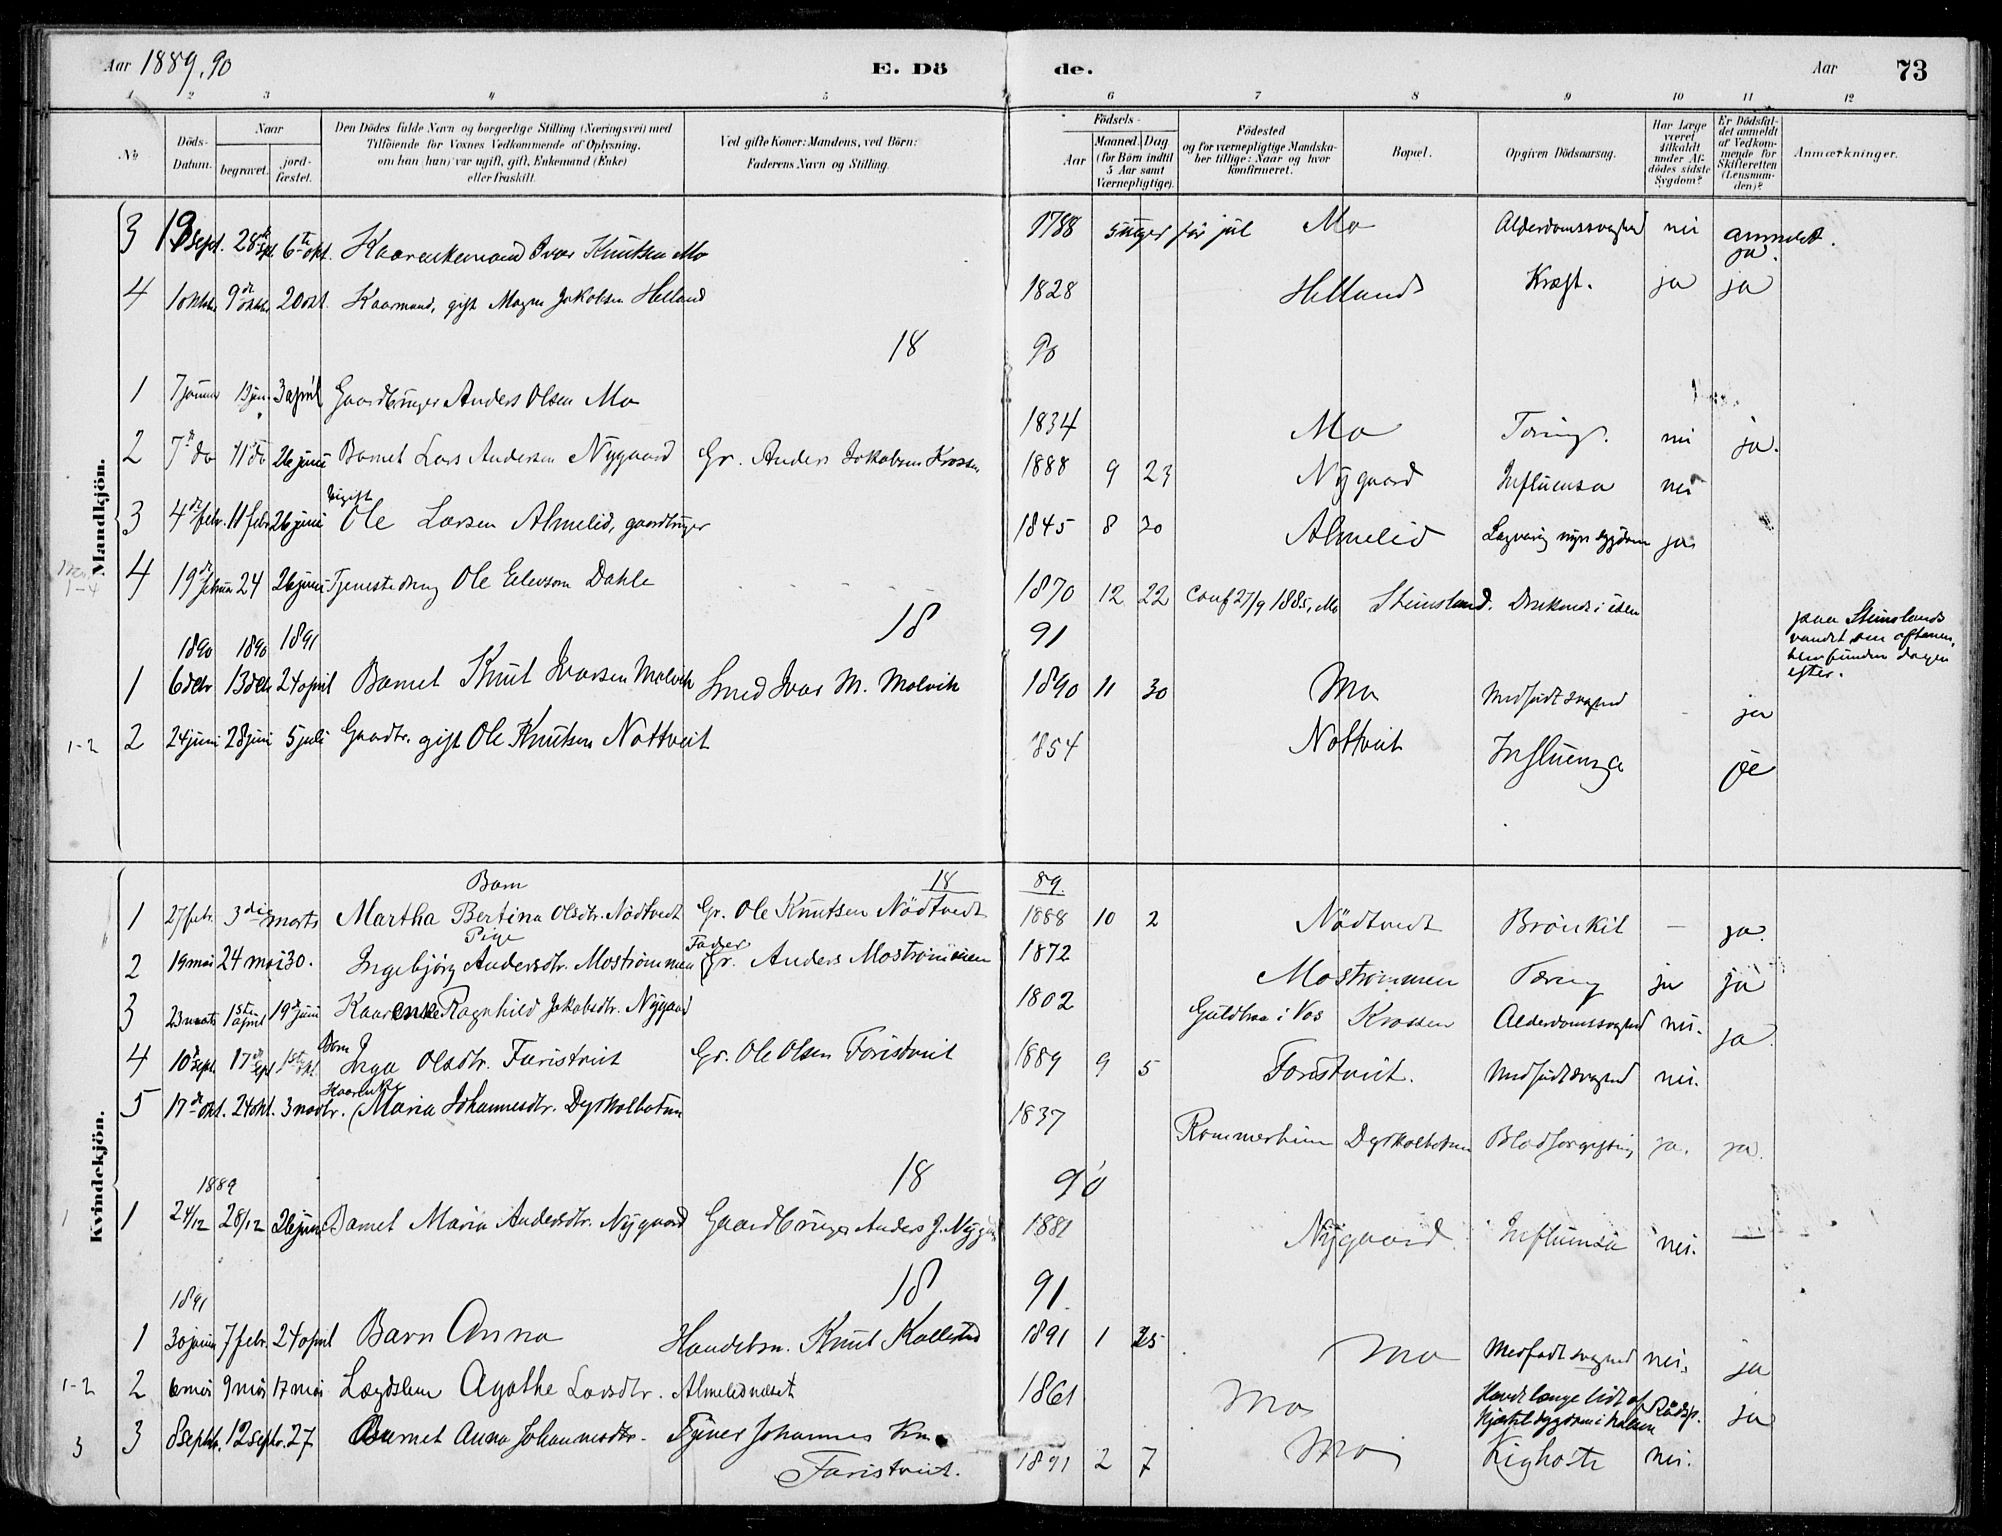 Aar 1889, 90 E. Dö de. Aar 73
1 2 3 4 5 6 7 8 9 10 11 12
No
Döds-Datum.
Naar
begravet. jord-fæstet.
Den Dödes fulde Navn og borgerlige Stilling (Næringsvei) med
Tilföiende for Voxnes Vedkommende af Oplysning.
om han (hun) var ugift, gift, Enkemand (Enke)
eller fraskilt.
Ved gifte Koner: Mandens, ved Börn:
Faderens Navn og Stilling.
Födsels-
Aar Maaned Dag
(for Börn indtil
5 Aar samt
Værnepligtige).
Födested
og for værnepligtige Mandska-
ber tillige: Naar og hvor
konfirmeret.
Bopæl.
Opgiven Dödsaarsag.
Har Læge
været
tilkaldt
under Af-
dödes sidste
Sygdom?
Er Dödsfal-
det anmeldt
af Vedkom-
mende for
Skifteretten
(Lensman-
den)?
Anmærkninger.
Mandkjön.
3 19 sept. 28de spt. 6te okt. Kaarenkemand Ivar Knutsen Mo 1788 5 uger för jul Mo Alderdomssvaghed nei anmeldt. ja.
4 1 oktbr. 9de oktbr. 20 okt. Kaarmand, gift Magne Jakobsen Helland 1828 Helland Kræft. ja ja
18 90
1 7 januar 13 jan. 3 april Gaardbruger Anders Olsen Mo 1834 Mo Tæring. nei ja.
2 7de do 11 do 26 juni Barnet Lars Andersen Nygaard Gr. Anders Jakobsen Krossen 1888 9 23 Nygaard Influensa nei
3 4de febr. 11 febr. 26 juni ugift Ole Larsen Almelid, gaardbruger 1845 8 30 Almelid Langvarig nyresygdom ja
4 19de februar 24 26 juni Tjenestedreng Ole Eilevson Dahle 1870 12 22 Conf 27/9 1885, Mo Steinsland. Druknede i isen
paa Steinslands
vandet om aftenen,
blev funden dagen
efter.
1-4
18 91
1890 1890 1891
1 6 debr 13 debr 24 april Barnet Knut Ivarsen Molvik Smed Ivar M. Molvik 1890 11 30 Mo Medfødt svaghed - ja
1-2 2 24 juni 28 juni 5 juli Gaardbr. gift Ole Knutsen Nottveit 1854 Nottveit Influenza ja
Kvindekjön.
18 89.
1 27 febr. 3die marts Barn Martha Bertina Olsdtr. Nödtvedt Gr. Ole Knutsen Nödtvedt 1888 10 2 Nödtvedt Bronkit - ja.
2 19 mai 24 mai 30. Pige Ingebjörg Andersdtr. Moströmmen Fader Gr. Anders Moströmmen 1872 Moströmmen Tæring ja ja
3 23 marts 1ste april 19de juni Kaarenke Ragnhild Jakobsdtr. Nygaard 1802 Guldbraa i Vos Krossen Alderdomssvaghed nei. ja.
4 10de sept. 17de sept 1ste okt. Barn Inga Olsdtr. Faristveit Gr. Ole Olsen Faristveit 1889 9 5 Faristveit. Medfødt svaghed nei.
5 17de okt. 24 okt. 3 novbr. Kaarenke Maria Johannesdtr. Dyrkolbotnen 1837 Rommerheim Dyrkolbotnen Blodforgiftning ja. ja.
18 90
1889
1 1 24/12 28/12 26 juni Barnet Maria Andersdtr. Nygaard Gaardbruger Anders J. Nygaard 1881 Nygaard. Influensa nei. —
18 91.
1891
1 30 januar 7 febr. 24 april Barn Anna Handelsm. Knut Kallestad 1891 1 25 Mo Medfødt svaghed nei. ja
1-2 2 6 mai 9 mai 17 mai Lægdslem Agathe Larsdtr. Almelidnæset 1861 Mo Havt længe lidt af
Kjertelsygdom i halsen ja
3 3 8 septbr. 12 septbr. 27 Barnet Anna Johannesdtr. Johannes
Faristveit. 1891 2 7 Mo Kighoste nei.